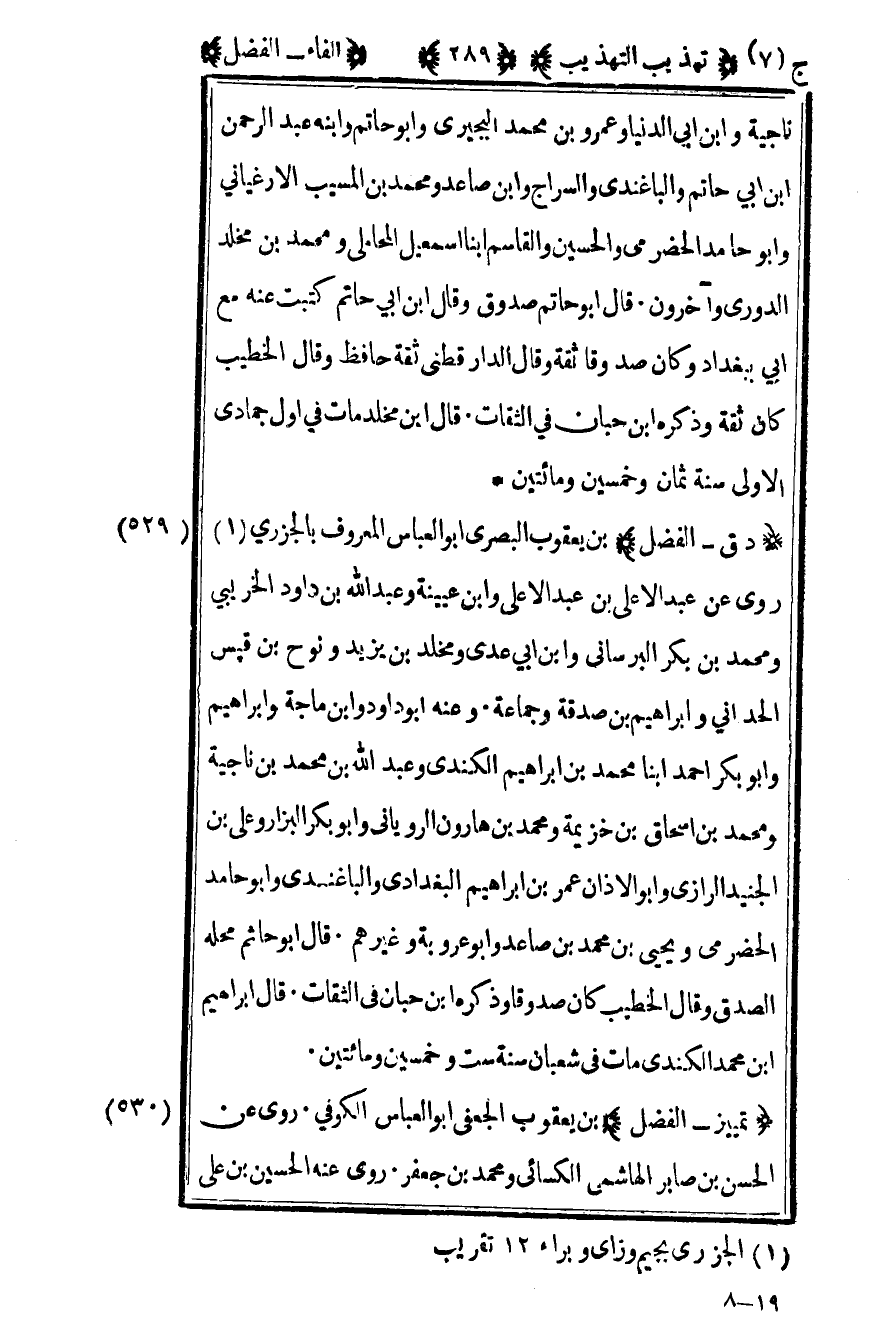 ج (٧) ﴿ تهذيب التهذيب ﴾ ﴿ ٢٨٩ ﴾ ﴿ الفاء ـ الفضل ﴾
ناجية و ابن ابي الدنيا وعمرو بن محمد البجيرى وابو حاتم وابنه عبد الرحمن
ابن ابي حاتم والباغندى والسراج وابن صاعد ومحمد بن المسيب الارغياني
وابو حامد الحضرمى والحسين والقاسم ابنا اسمعيل المحاملى و محمد بن مخلد
الدورى وآخرون · قال ابو حاتم صدوق وقال ابن ابي حاتم كتبت عنه مع
ابي ببغداد وكان صدوقا ثقة وقال الدار قطنى ثقة حافظ وقال الخطيب
كان ثقة وذكره ابن حبان في الثقات · قال ابن مخلد مات في اول جمادى
الاولى سنة ثمان وخمسين ومائتين *
﴿ د ق ـ الفضل ﴾ بن يعقوب البصرى ابو العباس المعروف بالجزري (١) (٥٢٩)
روى عن عبد الاعلى بن عبد الاعلى وابن عيينة وعبدالله بن داود الخريبي
ومحمد بن بكر البرسانى وابن ابي عدى ومخلد بن يزيد و نوح بن قيس
الحداني و ابراهيم بن صدقة وجماعة · و عنه ابو داود وابن ماجة وابراهيم
وابو بكر احمد ابنا محمد بن ابراهيم الكندى وعبد الله بن محمد بن ناجية
ومحمد بن اسحاق بن خزيمة ومحمد بن هارون الرويانى وابو بكر البزار وعلى بن
الجنيد الرازى وابو الاذان عمر بن ابراهيم البغدادى والباغندى وابو حامد
الحضرمى و يحيى بن محمد بن صاعد وابو عروبة و غيرهم · قال ابو حاتم محله
الصدق وقال الخطيب كان صدوقا وذكره ابن حبان فى الثقات · قال ابراهيم
ابن محمد الكندى مات فى شعبان سنة ست و خمسين ومائتين ·
﴿ تمييز ـ الفضل ﴾ بن يعقوب الجعفى ابو العباس الكوفي · روى عن (٥٣٠)
الحسن بن صابر الهاشمى الكسائى ومحمد بن جعفر · روى عنه الحسين بن على
(١) الجزرى بجيم وزاى وبراء ١٢ تقريب
١٩-٨